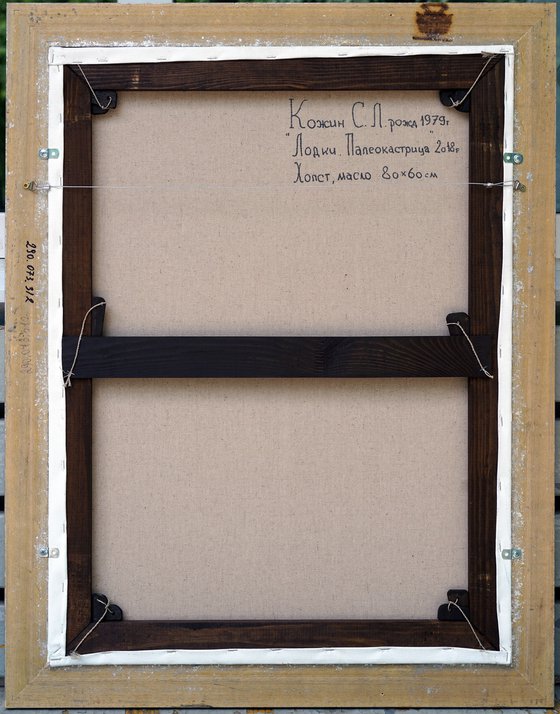 Кожин С.Л. рожд 1979г
"Лодки. Палеокастрица" 2018г
Холст, масло 80×60 см
290.073.3/2